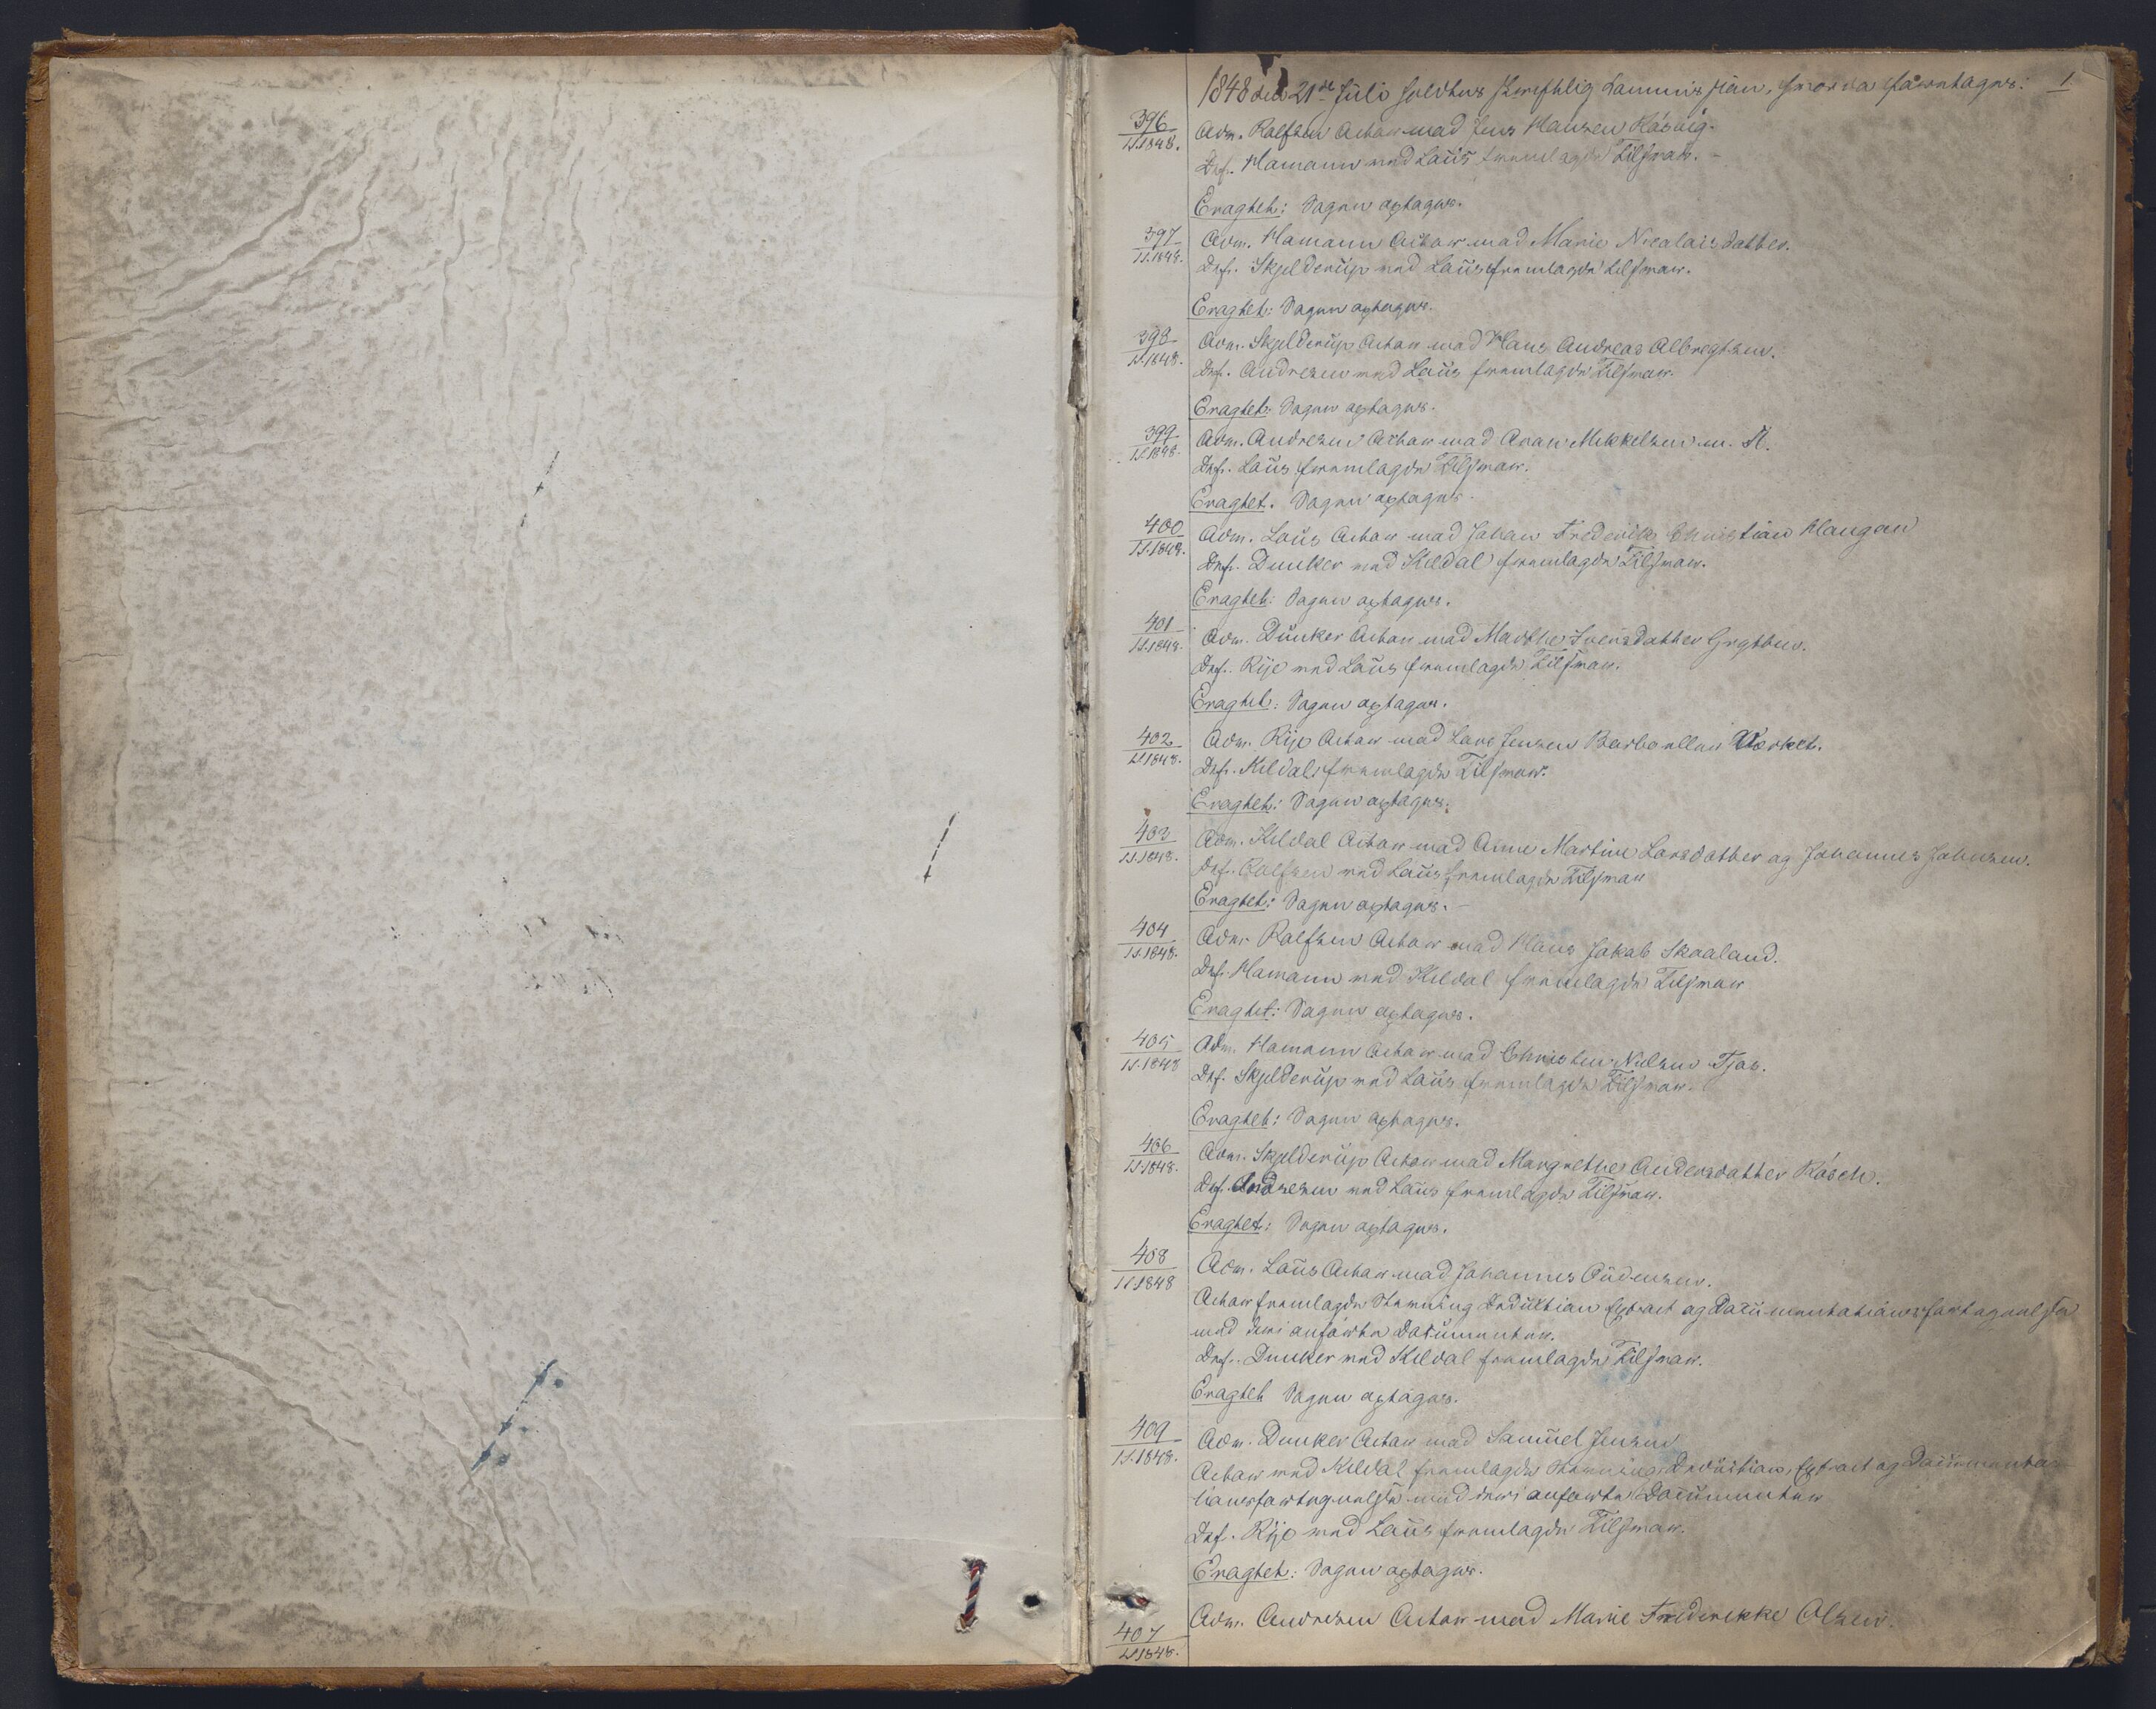 1
1848 den 21de Juli holdtes skriftlig Commission, hvorda foretages:
396
L.1848.
Adv. Rolfsen Actor mod Jens Hansen Häsvig.
Def. Hamann ved Laus fremlagde Tilsvar. –
Eragtet: Sagen optages.
397
L.1848.
Adv. Hamann Actor mod Marie Nicolaisdatter.
Def. Skjelderup ved Laus fremlagde Tilsvar.
Eragtet: Sagen optages.
398
L.1848.
Adv. Skjelderup Actor mod Hans Andreas Albregtsen.
Def. Andresen ved Laus fremlagde Tilsvar.
Eragtet: Sagen optages.
399
L.1848.
Adv. Andresen Actor mod Aron Mikkelsen m. fl.
Def. Laus fremlagde Tilsvar.
Eragtet. Sagen optages.
400
L.1848.
Adv. Laus Actor mod Johan Frederik Christian Haugan
Def. Dunker ved Kildal fremlagde Tilsvar.
Eragtet: Sagen optages.
401
L.1848.
Adv. Dunker Actor mod Marthe Svensdatter Grytten.
Def. Rije ved Laus fremlagde Tilsvar.
Eragtet: Sagen optages.
402
L.1848.
Adv. Rije Actor mod Lars Jensen Barbaellen Værket.
Def. Kildal fremlagde Tilsvar.
Eragtet: Sagen optages.
403
L.1848.
Adv. Kildal Actor mod Anne Martine Larsdatter og Johannes Johnsen.
Def. Rolfsen ved Laus fremlagde Tilsvar
Eragtet: Sagen optages. –
404
L.1848.
Adv. Rolfsen Actor mod Hans Jakob Skaaland.
Def. Hamann ved Kildal fremlagde Tilsvar
Eragtet: Sagen optages.
405
L.1848
Adv. Hamann Actor mod Christen Nielsen Tjos.
Def. Skjelderup ved Laus fremlagde Tilsvar.
Eragtet: Sagen optages.
406
L.1848.
Adv. Skjelderup Actor mod Margrethe Andersdatter Rösch.
Def. Andresen ved Laus fremlagde Tilsvar.
Eragtet: Sagen optages.
408
L.1848
Adv. Laus Actor mod Johannes Audensen.
Actor fremlagde Stævning Deduction Extract og Documentationsfortegnelse
med deri anførte Documenter.
Def. Dunker ved Kildal fremlagde Tilsvar.
Eragtet Sagen optages.
409
L.1848.
Adv. Dunker Actor mod Samuel Jensen
Actor ved Kildal fremlagde Stævning, Deduction, Extract og Documenta-
tionsfortegnelse med deri anførte Documenter
Def. Rije ved Laus fremlagde Tilsvar.
Eragtet: Sagen optages.
407
L.1848.
Adv. Andresen Actor mod Marie Frederikke Olsen.